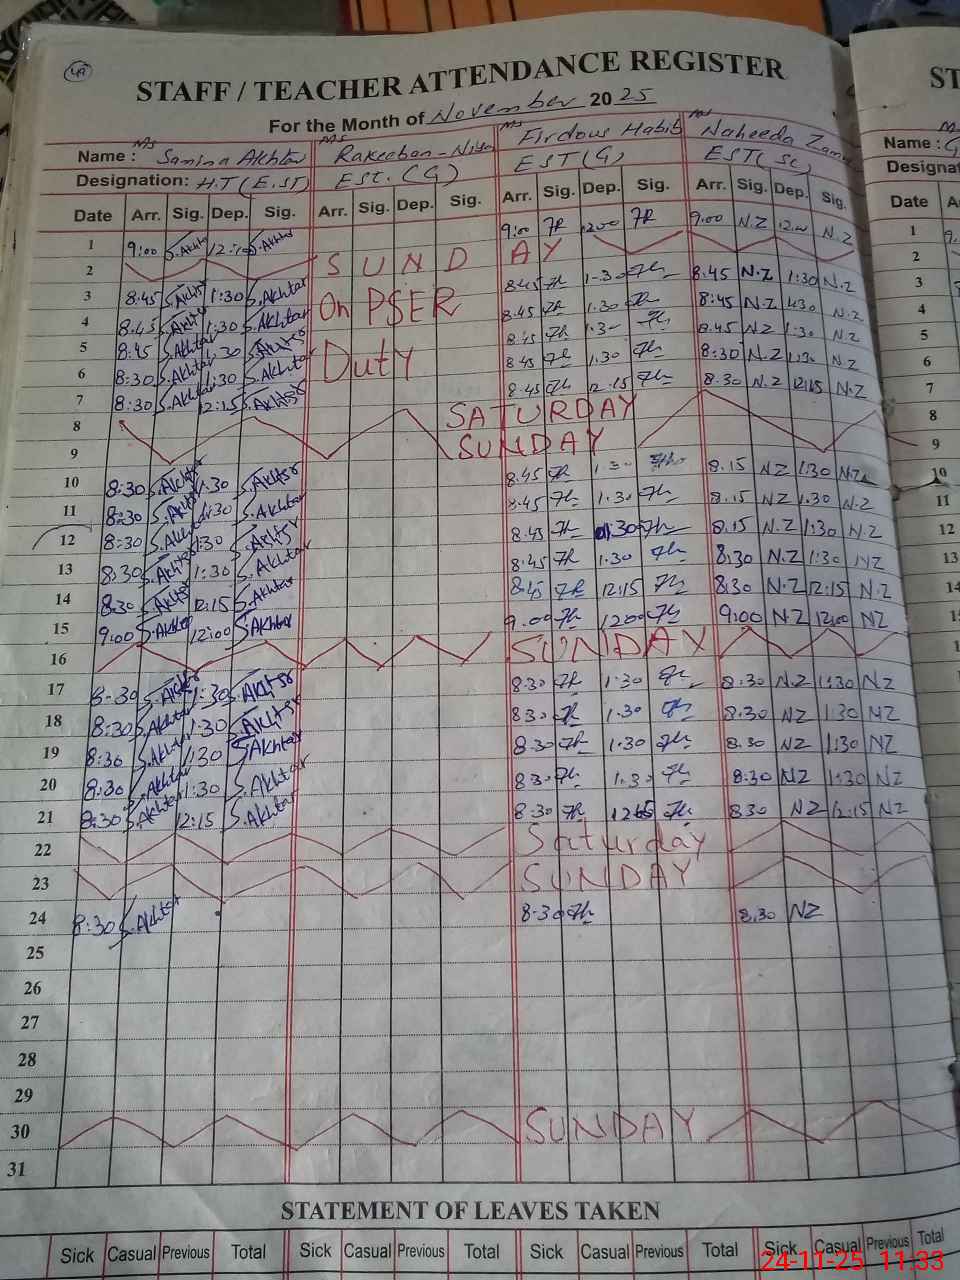 49
STAFF / TEACHER ATTENDANCE REGISTER ST
For the Month of November 2025
Name : Ms Samina Akhtar Ms Rakeeban-Nisa Ms Firdous Habib Ms Naheeda Name :
Designation: H.T (E.ST) Est. (G) EST (G) EST (Sc) Designat
Date Arr. Sig. Dep. Sig. Arr. Sig. Dep. Sig. Arr. Sig. Dep. Sig. Arr. Sig. Dep. Sig. Date
1 9:00 S.Akhtar S.Akhtar 9:00 Fh 12:00 Fh 9.00 N.Z 12.00 N.Z 1
2 SUNDAY 2
3 8:45 S.Akhtar 1:30 S.Akhtar On PSER 8:45 Fh 1-30 Fh 8.45 N.Z 1:30 N.Z 3
4 8:45 S.Akhtar 1:30 S.Akhtar 8.45 Fh 1.30 Fh 8:45 N.Z 1:30 N.Z 4
5 8:45 S.Akhtar 1:30 S.Akhtar Duty 8:45 Fh 1.30 Fh 8.45 NZ 1:30 N.Z 5
6 8:30 S.Akhtar 1:30 S.Akhtar 8.45 Fh 1.30 Fh 8:30 N.Z 1:30 N.Z 6
7 8:30 S.Akhtar 12:15 S.Akhtar 8.45 Fh 12:15 Fh 8.30 N.Z 12:15 N.Z 7
8 SATURDAY 8
9 SUNDAY 9
10 8:30 S.Akhtar 1:30 S.Akhtar 8.45 Fh 1.30 8.15 NZ 1:30 N.Z 10
11 8:30 S.Akhtar 1:30 S.Akhtar 8.45 Fh 1.30 Fh 8.15 NZ 1.30 N.Z 11
12 8:30 S.Akhtar 1:30 S.Akhtar 8.45 Fh 1:30 Fh 8.15 N.Z 1:30 N.Z 12
13 8:30 S.Akhtar 1:30 S.Akhtar 8.45 Fh 1.30 Fh 8:30 N.Z 1:30 NZ 13
14 8:30 S.Akhtar 12:15 S.Akhtar 8.45 Fh 12:15 Fh 8:30 N.Z 12:15 N.Z 14
15 9:00 S.Akhtar 12:00 SAkhtar 9.00 Fh 1200 Fh 9:00 NZ 12:00 NZ 15
16 SUNDAY
17 8-30 S.Akhtar 1:30 S.Akhtar 8.30 Fh 1.30 Fh 8.30 N.Z 1:30 NZ
18 8:30 S.Akhtar 1:30 S.Akhtar 8.30 Fh 1.30 Fh 8.30 NZ 1:30 NZ
19 8:30 S.Akhtar 1:30 SAkhtar 8.30 Fh 1.30 Fh 8.30 NZ 1:30 NZ
20 8:30 S.Akhtar 1:30 S.Akhtar 8.30 Fh 1.30 Fh 8:30 NZ 1:30 NZ
21 8:30 S.Akhtar 12:15 S.Akhtar 8.30 Fh Fh 830 NZ 12:15 NZ
22 Saturday
23 SUNDAY
24 8:30 S.Akhtar 8-30 Fh 8.30 NZ
25
26
27
28
29
30 SUNDAY
31
STATEMENT OF LEAVES TAKEN
Sick Casual Previous Total Sick Casual Previous Total Sick Casual Previous Total Sick Casual Previous Total
24-11-25 11:33